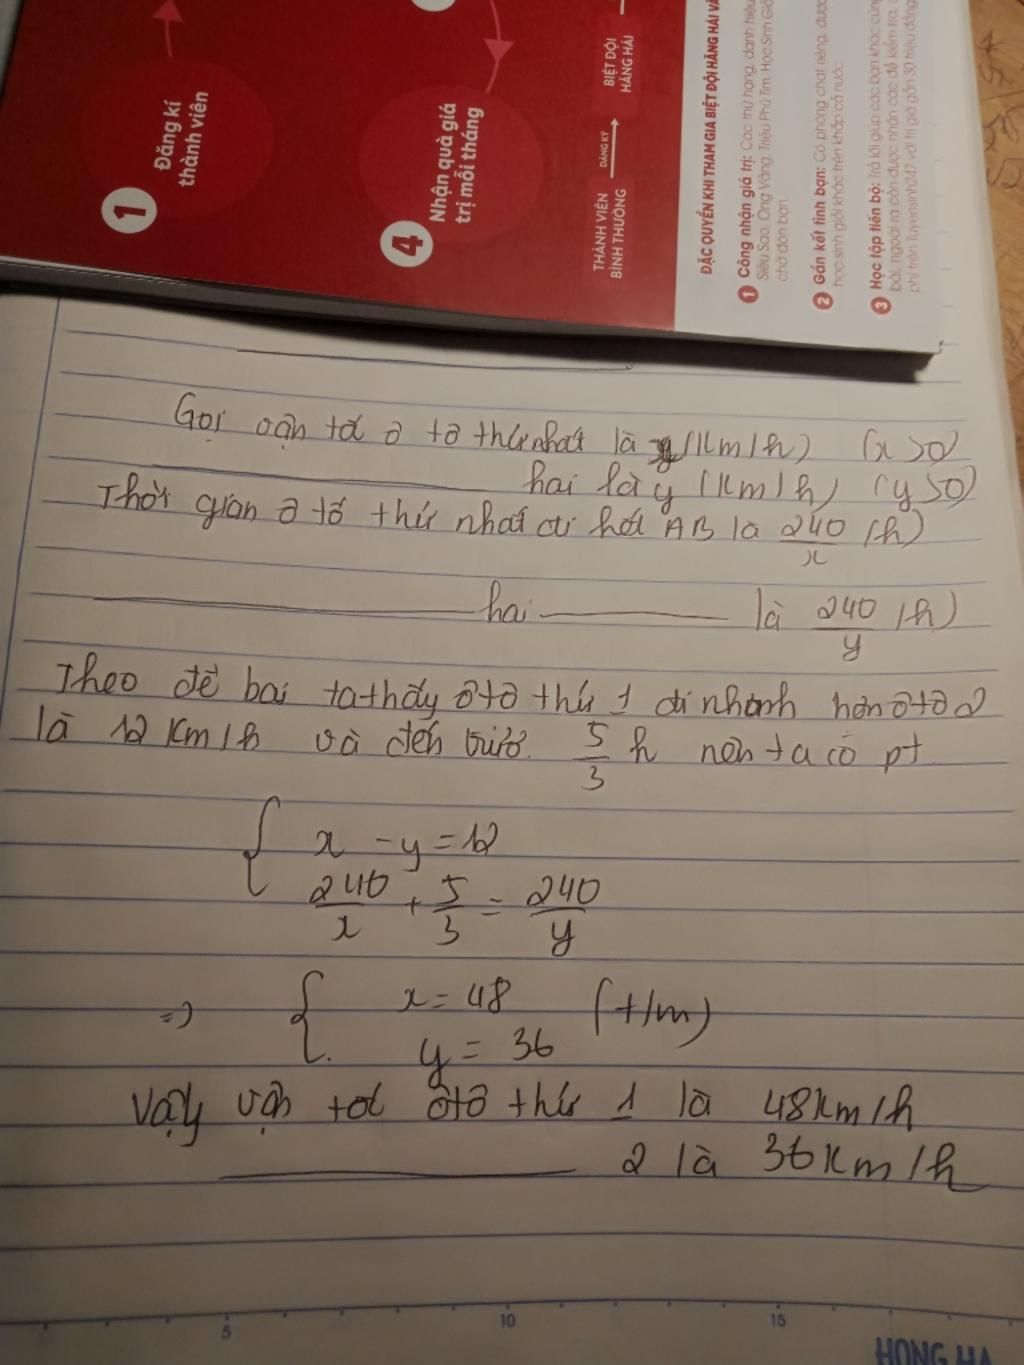 1
Đăng kí
thành viên
4
Nhận quà giá
trị mỗi tháng
THÀNH VIÊN
BÌNH THƯỜNG
ĐĂNG KÝ
BIỆT ĐỘI
HĂNG HÁI
ĐẶC QUYỀN KHI THAM GIA BIỆT ĐỘI HĂNG HÁI VÀ
1 Công nhận giá trị: Các thứ hạng, danh hiệu
Siêu Sao, Ong Vàng, Triệu Phú Tim, Học Sinh Giỏ
chờ đón bạn.
2 Gắn kết tình bạn: Có phòng chat riêng, đượ
học sinh giỏi khác trên khắp cả nước.
3 Học tập tiến bộ: Trả lời giúp các bạn khác cũng
bài, ngoài ra còn được nhận các đề kiểm tra,
phí trên Tuyensinh247 với trị giá gần 30 triệu đồng
Gọi vận tốc ô tô thứ nhất là x (km/h) (x>0)
hai là y (km/h) (y>0)
Thời gian ô tô thứ nhất đi hết AB là 240/x (h)
hai là 240/y (h)
Theo đề bài ta thấy ô tô thứ 1 đi nhanh hơn ô tô 2
là 12 km/h và đến trước 5/3 h nên ta có pt
{ x - y = 12
240/x + 5/3 = 240/y
=> { x = 48 (t/m)
y = 36
Vậy vận tốc ôtô thứ 1 là 48km/h
2 là 36km/h
5 10 15
HONG HA